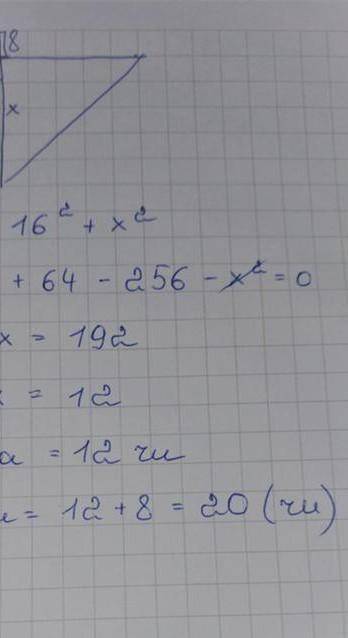 8
x
16² + x²
+ 64 - 256 - x² = 0
x = 192
= 12
= 12 чи
= 12 + 8 = 20 (чи)